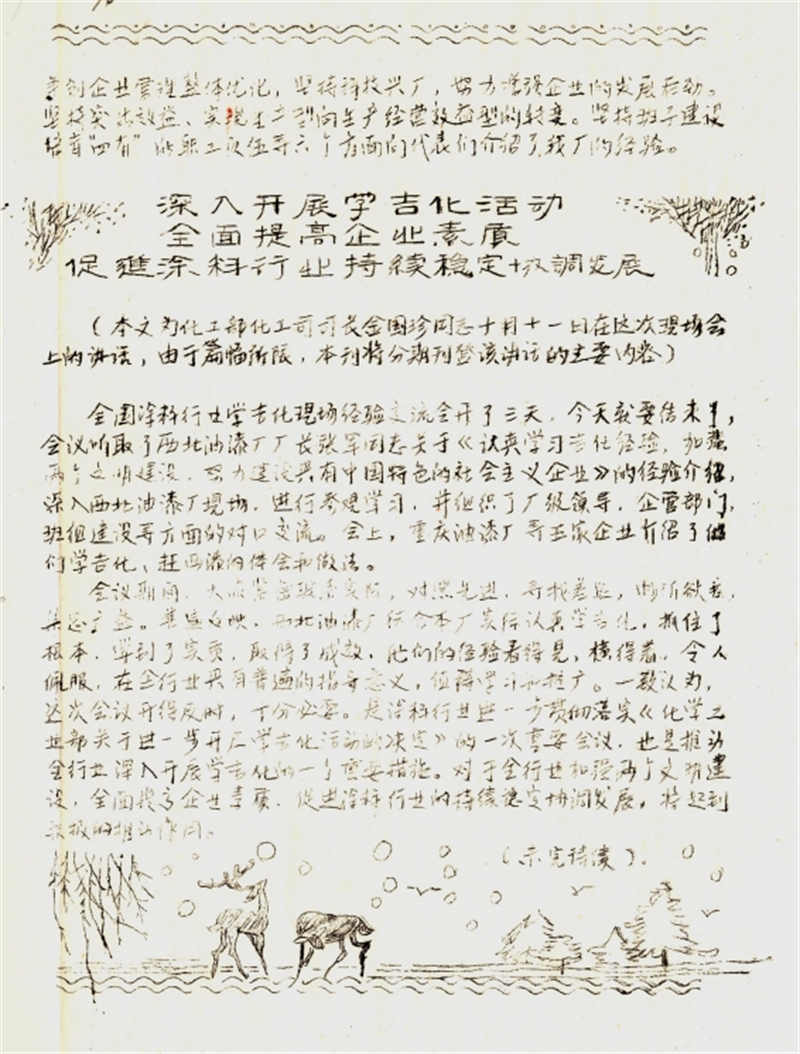 创企业管理整体优化，坚持科技兴厂，努力增强企业的发展后劲。
坚持突出效益、实现生产型向生产经营效益型的转变。坚持班子建设
培育“四有”的职工队伍等六个方面向代表们介绍了我厂的经验。
深入开展学吉化活动
全面提高企业素质
促進涂料行业持续稳定协調发展
（本文为化工部化工司司长金国珍同志十月十一日在这次现场会
上的讲话，由于篇幅所限，本刊将分期刊登该讲话的主要内容）
全国涂料行业学吉化现场经验交流会开了三天，今天就要结束了，
会议听取了西北油漆厂厂长张军同志关于《认真学习吉化经验，加强
两个文明建设，努力建设具有中国特色的社会主义企业》的经验介绍，
深入西北油漆厂现场，进行参观学习，并组织了厂级领导，企管部门，
班组建设等方面的对口交流。会上，重庆油漆厂等五家企业介绍了他
们学吉化、赶西漆的体会和做法。
会议期间，大家紧密联系实际，对照先进，寻找差距，畅所欲言，
集思广益。集中反映，西北油漆厂结合本厂实际认真学吉化，抓住了
根本，学到了实质，取得了成效，他们的经验看得见，摸得着，令人
佩服，在全行业具有普遍的指导意义，值得学习和推广。一致认为，
这次会议开得及时，十分必要。是涂料行业进一步贯彻落实《化学工
业部关于进一步开展学吉化活动的决定》的一次重要会议，也是推动
全行业深入开展学吉化的一个重要措施。对于全行业加强两个文明建
设，全面提高企业素质，促进涂料行业的持续稳定协调发展，将起到
积极的推动作用。
（未完待续）.